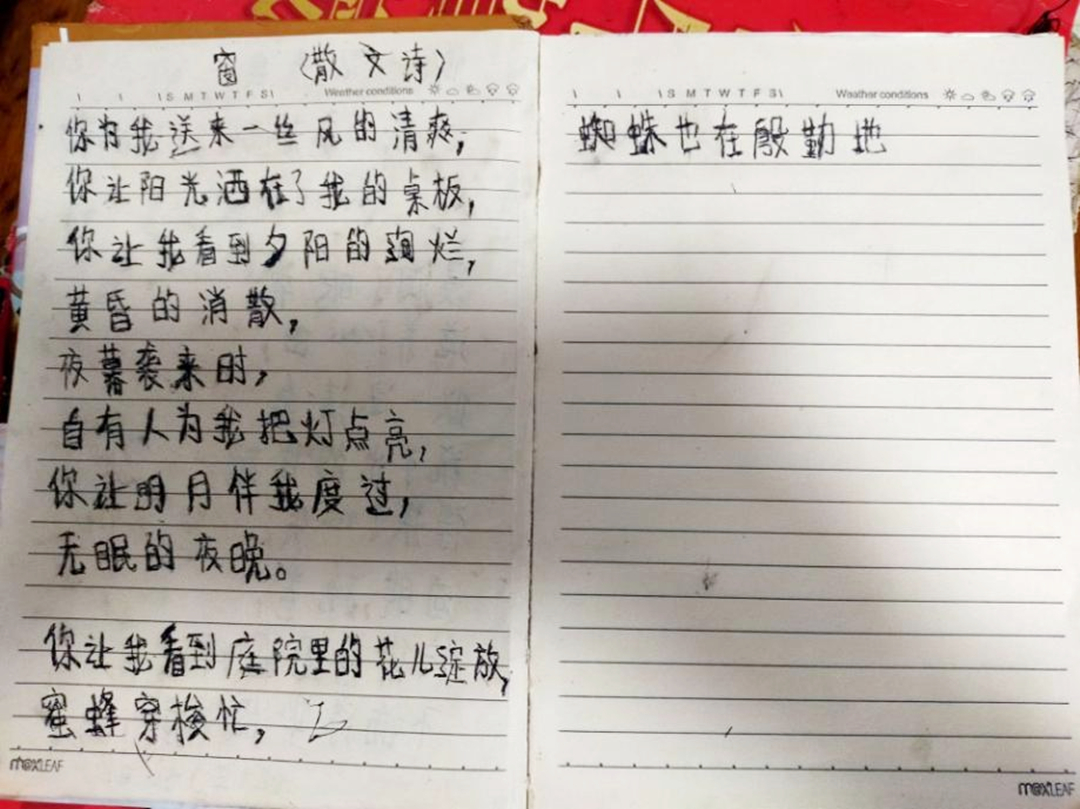 窗 (散文诗)
S M T W T F S Weather conditions
你为我送来一丝风的清爽,
你让阳光洒在了我的桌板,
你让我看到夕阳的绚烂,
黄昏的消散,
夜幕袭来时,
自有人为我把灯点亮,
你让明月伴我度过,
无眠的夜晚。
你让我看到庭院里的花儿绽放,
蜜蜂穿梭忙,
maxLEAF
S M T W T F S Weather conditions
蜘蛛也在殷勤地
maxLEAF